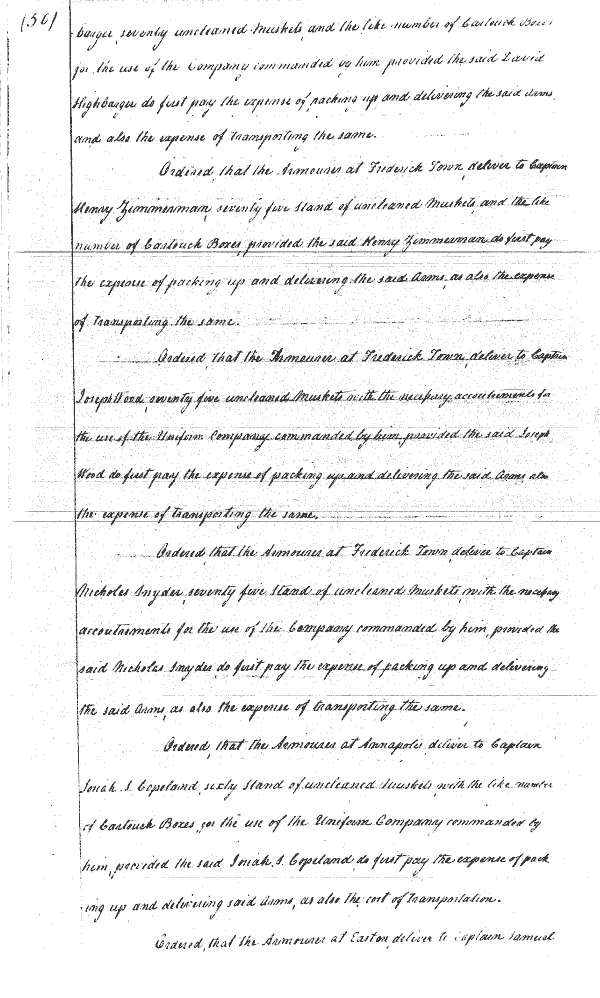 (50)
barger, seventy uncleaned Muskets and the like number of Cartouch Boxes
for the use of the Company commanded by him provided the said David
Highbarger do first pay the expense of packing up and delivering the said Arms,
and also the expense of transporting the same.
Ordered, that the Armourer at Frederick Town, deliver to Captain
Henry Zimmerman, seventy five Stand of uncleaned Muskets, and the like
number of Cartouch Boxes, provided the said Henry Zimmerman do first pay
the expense of packing up and delivering the said Arms, as also the expense
of transporting the same.
Ordered, that the Armourer at Frederick Town, deliver to Captain
Joseph Wood, seventy five uncleaned Muskets with the necessary accoutrements for
the use of the Uniform Company commanded by him, provided the said Joseph
Wood do first pay the expense of packing up and delivering the said Arms also
the expense of transporting the same.
Ordered, that the Armourer at Frederick Town, deliver to Captain
Nicholas Snyder, seventy five Stand of uncleaned Muskets, with the necessary
accoutrements for the use of the Company commanded by him, provided the
said Nicholas Snyder do first pay the expense of packing up and delivering
the said Arms, as also the expense of transporting the same.
Ordered, that the Armourer at Annapolis deliver to Captain
Jonah S. Copeland, sixty Stand of uncleaned Muskets, with the like number
of Cartouch Boxes, for the use of the Uniform Company commanded by
him, provided the said Jonah S. Copeland do first pay the expense of pack
ing up and delivering said Arms, as also the cost of transportation.
Ordered, that the Armourer at Easton, deliver to Captain Samuel